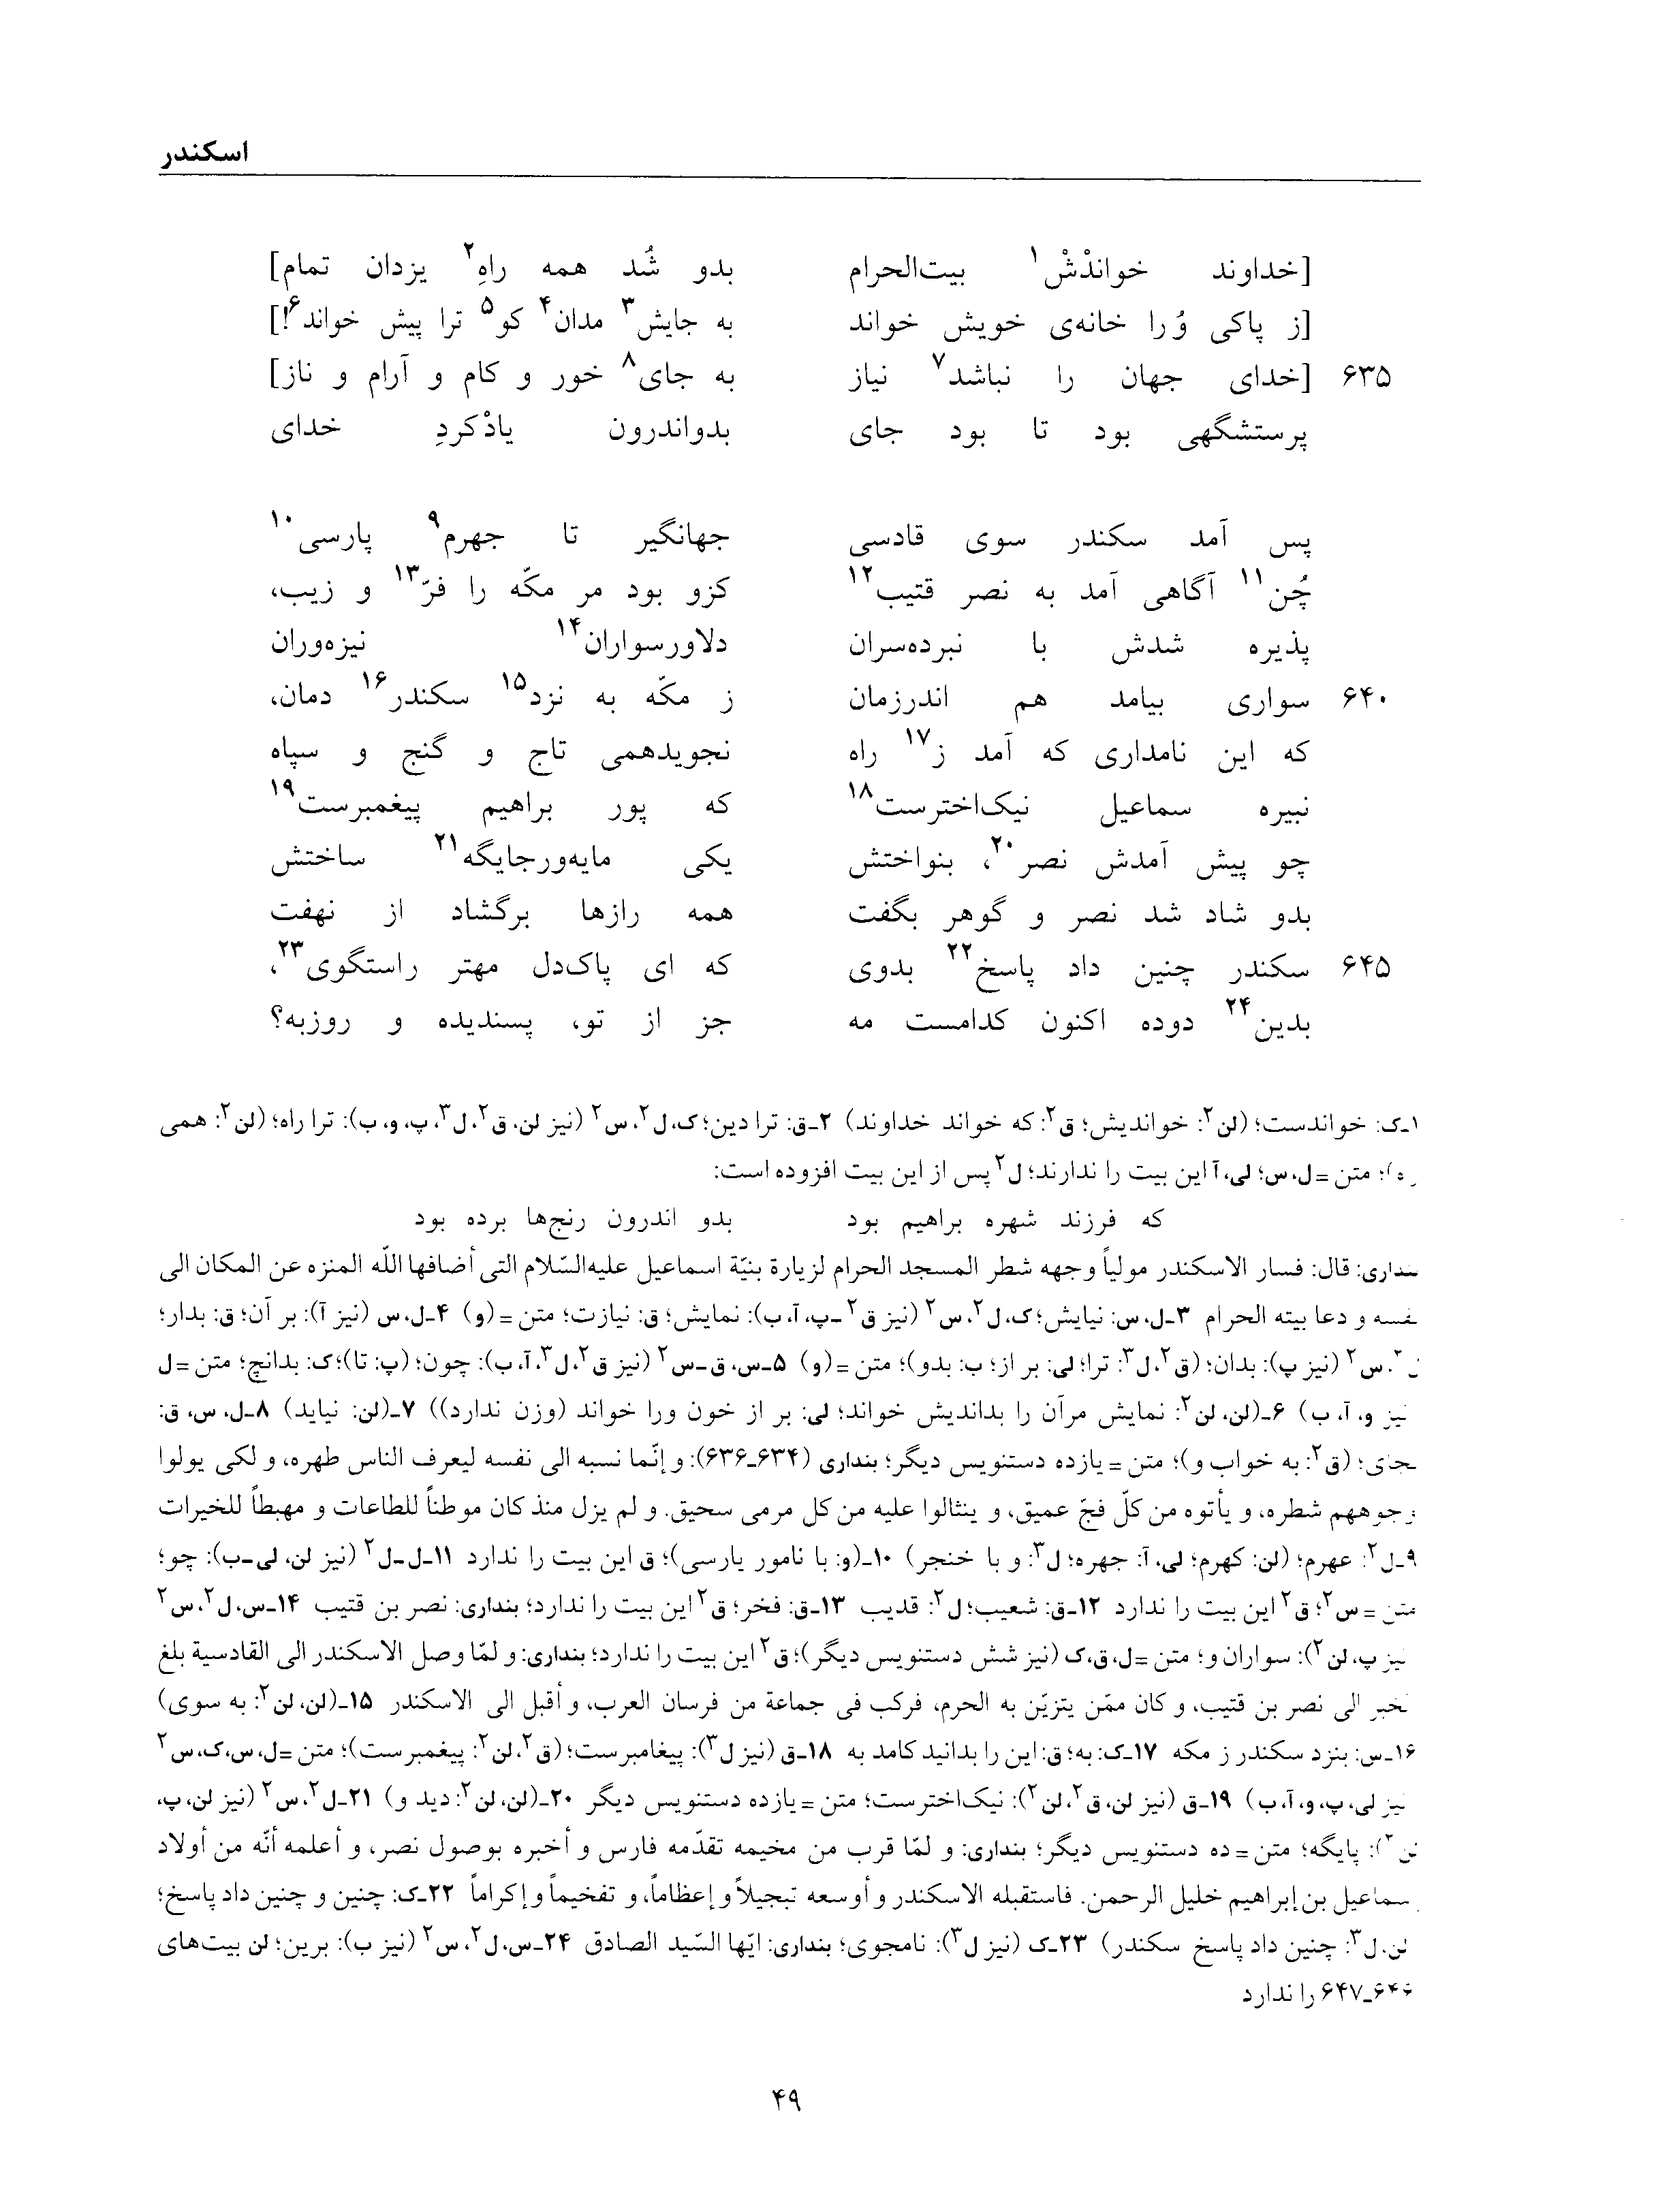 اسکندر
[خداوند خوانَدْشْ۱ بیت‌الحرام بدو شُد همه راهِ۲ یزدان تمام]
[ز پاکی وُ را خانه‌ی خویش خواند به جایش۳ مدان۴ کو۵ ترا پیش خواند۶!]
۶۳۵ [خدای جهان را نباشد۷ نیاز به جای۸ خور و کام و آرام و ناز]
پرستشگهی بود تا بود جای بدواندرون یادْکردِ خدای
پس آمد سکندر سوی قادسی جهانگیر تا جهرم۹ پارسی۱۰
چُن۱۱ آگاهی آمد به نصر قتیب۱۲ کزو بود مر مکّه را فرّ۱۳ و زیب،
پذیره شدش با نبرده‌سران دلاورسواران۱۴ نیزه‌وران
۶۴۰ سواری بیامد هم اندرزمان ز مکّه به نزد۱۵ سکندر۱۶ دمان،
که این نامداری که آمد ز۱۷ راه نجویدهمی تاج و گنج و سپاه
نبیره سماعیل نیک‌اخترست۱۸ که پور براهیم پیغمبرست۱۹
چو پیش آمدش نصر۲۰، بنواختش یکی مایه‌ورجایگه۲۱ ساختش
بدو شاد شد نصر و گوهر بگفت همه رازها برگشاد از نهفت
۶۴۵ سکندر چنین داد پاسخ۲۲ بدوی که ای پاک‌دل مهتر راستگوی۲۳،
بدین۲۴ دوده اکنون کدامست مه جز از تو، پسندیده و روزبه؟
۱ـک: خواندست؛ (لن۲: خواندیش؛ ق۲: که خواند خداوند) ۲ـق: ترا دین؛ ک، ل۲، س۲ (نیز لن، ق۲، ل۳، پ، و، ب): ترا راه؛ (لن۲: همی
ره)؛ متن = ل، س؛ لی، آ این بیت را ندارند؛ ل۲ پس از این بیت افزوده است:
که فرزند شهره براهیم بود بدو اندرون رنج‌ها برده بود
بنداری: قال: فسار الاسکندر مولیاً وجهه شطر المسجد الحرام لزیارة بنیّة اسماعیل علیه‌السّلام التی أضافها اللّه المنزه عن المکان الی
نفسه و دعا بیته الحرام ۳ـل، س: نیایش؛ ک، ل۲، س۲ (نیز ق۲ ـ پ، آ، ب): نمایش؛ ق: نیازت؛ متن = (و) ۴ـل، س (نیز آ): بر آن؛ ق: بدار؛
ل۲، س۲ (نیز پ): بدان؛ (ق۲، ل۳: ترا؛ لی: بر از؛ ب: بدو)؛ متن = (و) ۵ـس، ق ـ س۲ (نیز ق۲، ل۳، آ، ب): چون؛ (پ: تا)؛ ک: بدانچ؛ متن = ل
نیز و، آ، ب) ۶ـ(لن، لن۲: نمایش مرآن را بداندیش خواند؛ لی: بر از خون ورا خواند (وزن ندارد)) ۷ـ(لن: نیاید) ۸ـل، س، ق:
بجای؛ (ق۲: به خواب و)؛ متن = یازده دستنویس دیگر؛ بنداری (۶۳۴ـ۶۳۶): و إنّما نسبه الی نفسه لیعرف الناس طهره، و لکی یولوا
وجوههم شطره، و یأتوه من کلّ فجّ عمیق، و ینثالوا علیه من کل مرمی سحیق. و لم یزل منذ کان موطناً للطاعات و مهبطاً للخیرات
۹ـل۲: عهرم؛ (لن: کهرم؛ لی، آ: جهره؛ ل۳: و با خنجر) ۱۰ـ(و: با نامور پارسی)؛ ق این بیت را ندارد ۱۱ـل ـ ل۲ (نیز لن، لی ـ ب): چو؛
متن = س۲؛ ق۲ این بیت را ندارد ۱۲ـق: شعیب؛ ل۲: قدیب ۱۳ـق: فخر؛ ق۲ این بیت را ندارد؛ بنداری: نصر بن قتیب ۱۴ـس، ل۲، س۲
نیز پ، لن۲): سواران و؛ متن = ل، ق، ک (نیز شش دستنویس دیگر)؛ ق۲ این بیت را ندارد؛ بنداری: و لمّا وصل الاسکندر الی القادسیة بلغ
الخبر الی نصر بن قتیب، و کان ممّن یتزیّن به الحرم، فرکب فی جماعة من فرسان العرب، و أقبل الی الاسکندر ۱۵ـ(لن، لن۲: به سوی)
۱۶ـس: بنزد سکندر ز مکه ۱۷ـک: به؛ ق: این را بدانید کامد به ۱۸ـق (نیز ل۳): پیغامبرست؛ (ق۲، لن۲: پیغمبرست)؛ متن = ل، س، ک، س۲
نیز لی، پ، و، آ، ب) ۱۹ـق (نیز لن، ق۲، لن۲): نیک‌اخترست؛ متن = یازده دستنویس دیگر ۲۰ـ(لن، لن۲: دید و) ۲۱ـل۲، س۲ (نیز لن، پ،
لن۲): پایگه؛ متن = ده دستنویس دیگر؛ بنداری: و لمّا قرب من مخیمه تقدّمه فارس و أخبره بوصول نصر، و أعلمه أنّه من أولاد
سماعیل بن إبراهیم خلیل الرحمن. فاستقبله الاسکندر و أوسعه تبجیلاً و إعظاماً، و تفخیماً و إکراماً ۲۲ـک: چنین و چنین داد پاسخ؛
لن، ل۳: چنین داد پاسخ سکندر) ۲۳ـک (نیز ل۳): نامجوی؛ بنداری: ایّها السّید الصادق ۲۴ـس، ل۲، س۲ (نیز ب): برین؛ لن بیت‌های
۶۴۶ـ۶۴۷ را ندارد
۴۹